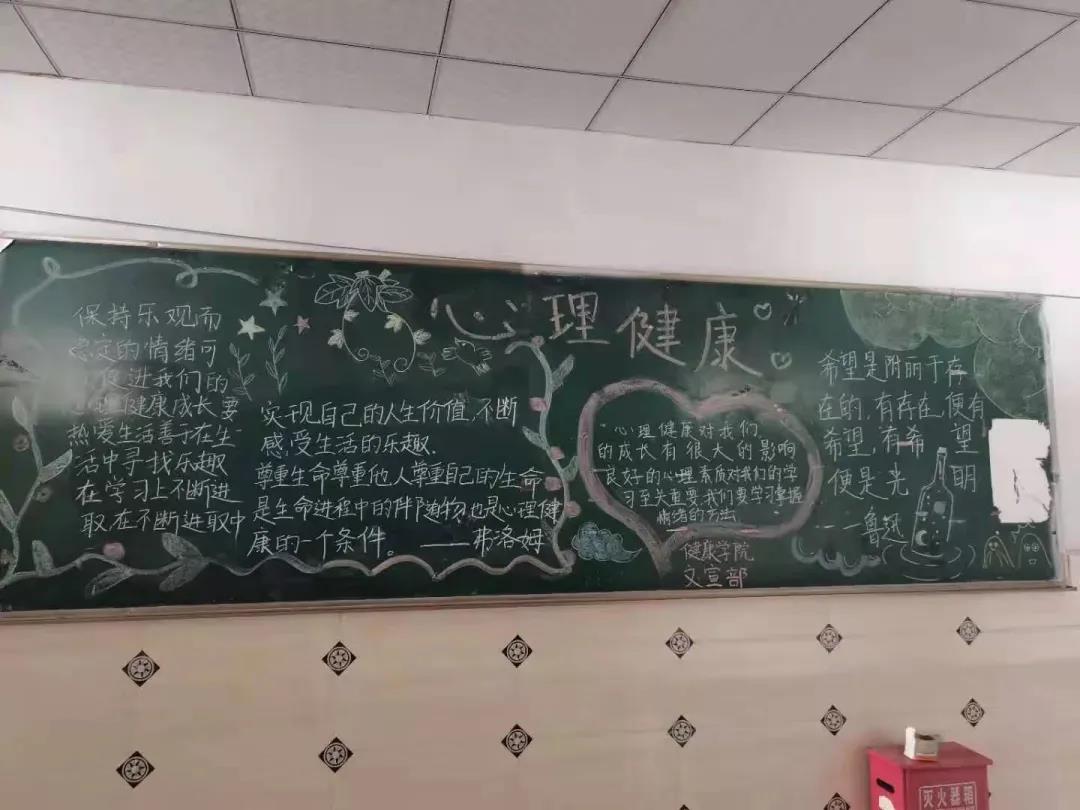 心理健康
保持乐观而
定的情绪可
促进我们的
心理健康成长要
热爱生活善于在生
活中寻找乐趣
在学习上不断进
取在不断进取中
实现自己的人生价值,不断
感受生活的乐趣.
尊重生命尊重他人尊重自己的生命
是生命进程中的伴随物也是心理健
康的一个条件。——弗洛姆
心理健康对我们
的成长有很大的影响
良好的心理素质对我们的学
习至关重要我们要学习掌握
情绪的方法
健康学院
文宣部
希望是附丽于存
在的,有存在,便有
希望,有希望
便是光明
——鲁迅
灭火器箱